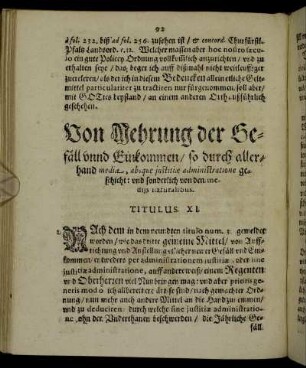 92
à fol. 252. biß ad fol. 256. zusehen ist / & concord. Churfürstl.
Pfaltz Landtord. t. 12. Welcher massen aber hoc nostro secu-
lo ein gute Policey Ordnung vollkomlich anzurichten / vnd zu
erhalten seye / das beger ich auff dißmahl nicht weitleuffiger
zuereferen / als der ich in diesem Bedencken allein etliche Gelt-
mittel particulariter zu tractiren mir fürgenommen, soll aber /
mit GOttes beystand / an einem anderen Orth außführlich
geschehen.
Von Mehrung der Ge-
fäll vnnd Einkommen / so durch aller-
hand media, absque justitiæ administratione ge-
schicht: vnd sonderlich von den me-
diys naturalibus.
TITULUS XI.
1. NAch dem in dem neundten titulo num. 3. gemeldet
worden / wie das zwey gemeine Mittel / von Auff-
richtung vnd Anstellung etlicher newer Gefäll vnd Ein-
kommen / entweders per administrationem justitiæ, oder sine
justitiæ administratione, auff ander weise einem Regenten
vnd Oberherren viel Nutz bringen mag: vnd aber prioris ge-
neris modo
nung / nun mehr auch andre Mittel an die Hand zu nemmen /
vnd zu deduciren: durch welche sine justitiæ administratione
ohn der Vnderthanen beschwerden / die Jährliche Ge-
fäll.